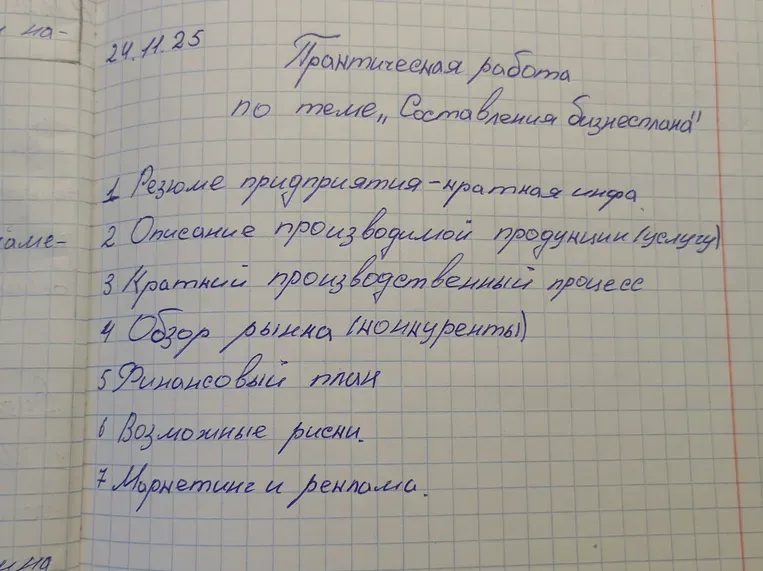 и на-
24.11.25
Практическая работа
по теме „Составления бизнесплана"
1 Резюме придприятия - кратная инфа
2 Описание производимой продукции (услугу)
3 Краткий производственный процесс
аме-
4 Обзор рынка (конкуренты)
5 Финансовый план
6 Возможные риски.
7 Маркетинг и реклама.
и на